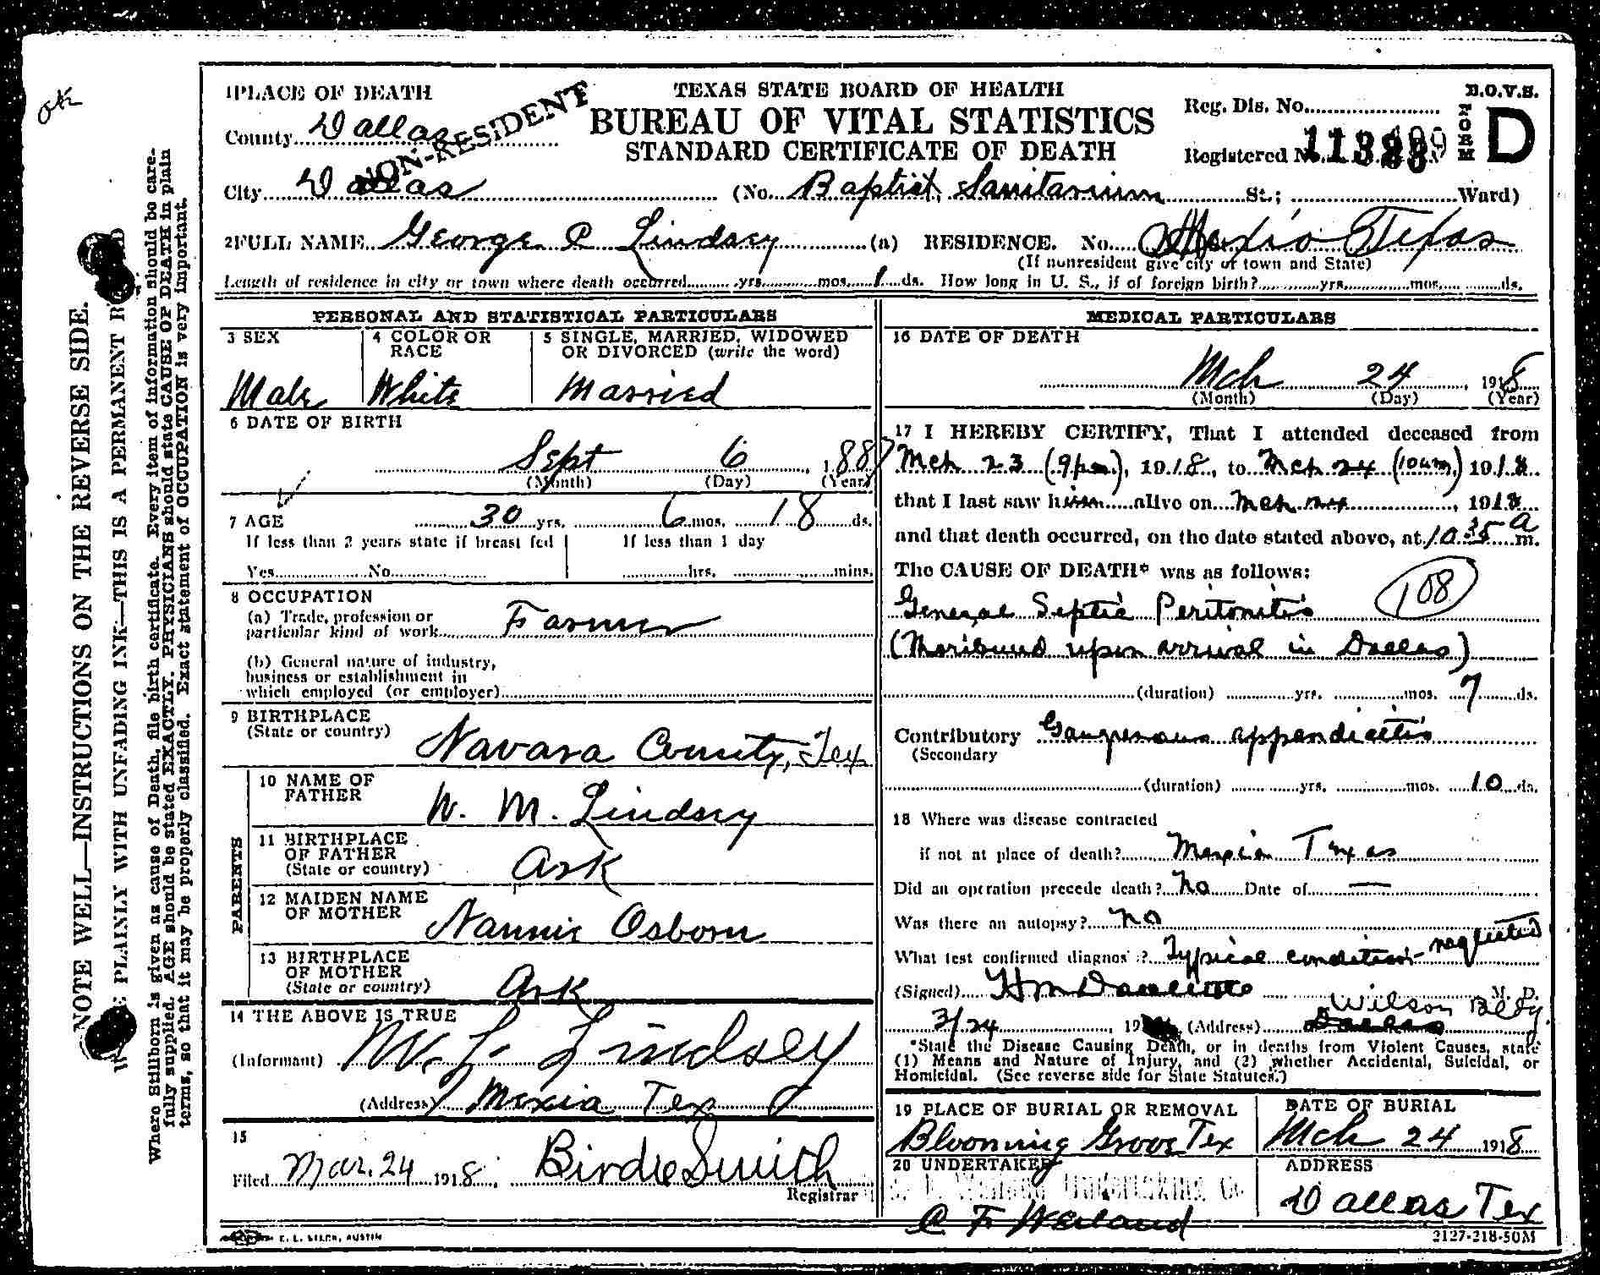 ok
1 PLACE OF DEATH
TEXAS STATE BOARD OF HEALTH
B.O.V.S.
NON-RESIDENT
BUREAU OF VITAL STATISTICS
Reg. Dis. No.
FORM D
County Dallas
STANDARD CERTIFICATE OF DEATH
Registered No.
City Dallas (No. Baptist Sanitarium St.; Ward)
2 FULL NAME George P Lindsey (a) RESIDENCE. No. Mexia Texas
(If nonresident give city or town and State)
Length of residence in city or town where death occurred yrs. mos. 1 ds. How long in U. S., if of foreign birth? yrs. mos. ds.
PERSONAL AND STATISTICAL PARTICULARS
3 SEX
4 COLOR OR RACE
5 SINGLE, MARRIED, WIDOWED
OR DIVORCED (write the word)
Male White Married
6 DATE OF BIRTH
Sept 6, 1887
(Month) (Day) (Year)
7 AGE 30 yrs. 6 mos. 18 ds.
If less than 2 years state if breast fed
If less than 1 day
Yes No hrs. mins.
8 OCCUPATION
(a) Trade, profession or
particular kind of work Farmer
(b) General nature of industry,
business or establishment in
which employed (or employer)
9 BIRTHPLACE
(State or country) Navara County, Tex
PARENTS
10 NAME OF
FATHER W. M. Lindsey
11 BIRTHPLACE
OF FATHER
(State or country) Ark
12 MAIDEN NAME
OF MOTHER Nannie Osborn
13 BIRTHPLACE
OF MOTHER
(State or country) Ark
14 THE ABOVE IS TRUE
(Informant) W. L. Lindsey
(Address) Mexia Tex
15
Filed Mar. 24 1918, Birdie Smith
Registrar
MEDICAL PARTICULARS
16 DATE OF DEATH
Mch 24, 1918
(Month) (Day) (Year)
17 I HEREBY CERTIFY, That I attended deceased from
Mch 23 (9pm), 1918, to Mch 24 (10am) 1918
that I last saw him alive on Mch 24, 1918
and that death occurred, on the date stated above, at 10 35 a m.
The CAUSE OF DEATH* was as follows:
General Septic Peritonitis 108
(Moribund upon arrival in Dallas)
(duration) yrs. mos. 7 ds.
Contributory Gangrenous appendicitis
(Secondary
(duration) yrs. mos. 10 ds.
18 Where was disease contracted
if not at place of death? Mexia Texas
Did an operation precede death? No Date of —
Was there an autopsy? no
What test confirmed diagnosis? Typical condition - neglected
(Signed) M. D.
3/24, 19 (Address) Wilson Bldg.
Dallas
*State the Disease Causing Death, or in deaths from Violent Causes, state
(1) Means and Nature of Injury, and (2) whether Accidental, Suicidal, or
Homicidal. (See reverse side for State Statutes.)
19 PLACE OF BURIAL OR REMOVAL
Blooming Grove Tex
DATE OF BURIAL
Mch 24 1918
20 UNDERTAKER
Undertaking Co
C F Weiland
ADDRESS
Dallas Tex
E. L. STECK, AUSTIN
2127-218-50M
NOTE WELL—INSTRUCTIONS ON THE REVERSE SIDE.
PLAINLY WITH UNFADING INK—THIS IS A PERMANENT
Where Stillborn is given as cause of Death, file birth certificate. Every item of information should be care-
fully supplied. AGE should be stated EXACTLY. PHYSICIANS should state CAUSE OF DEATH in plain
terms, so that it may be properly classified. Exact statement of OCCUPATION is very important.